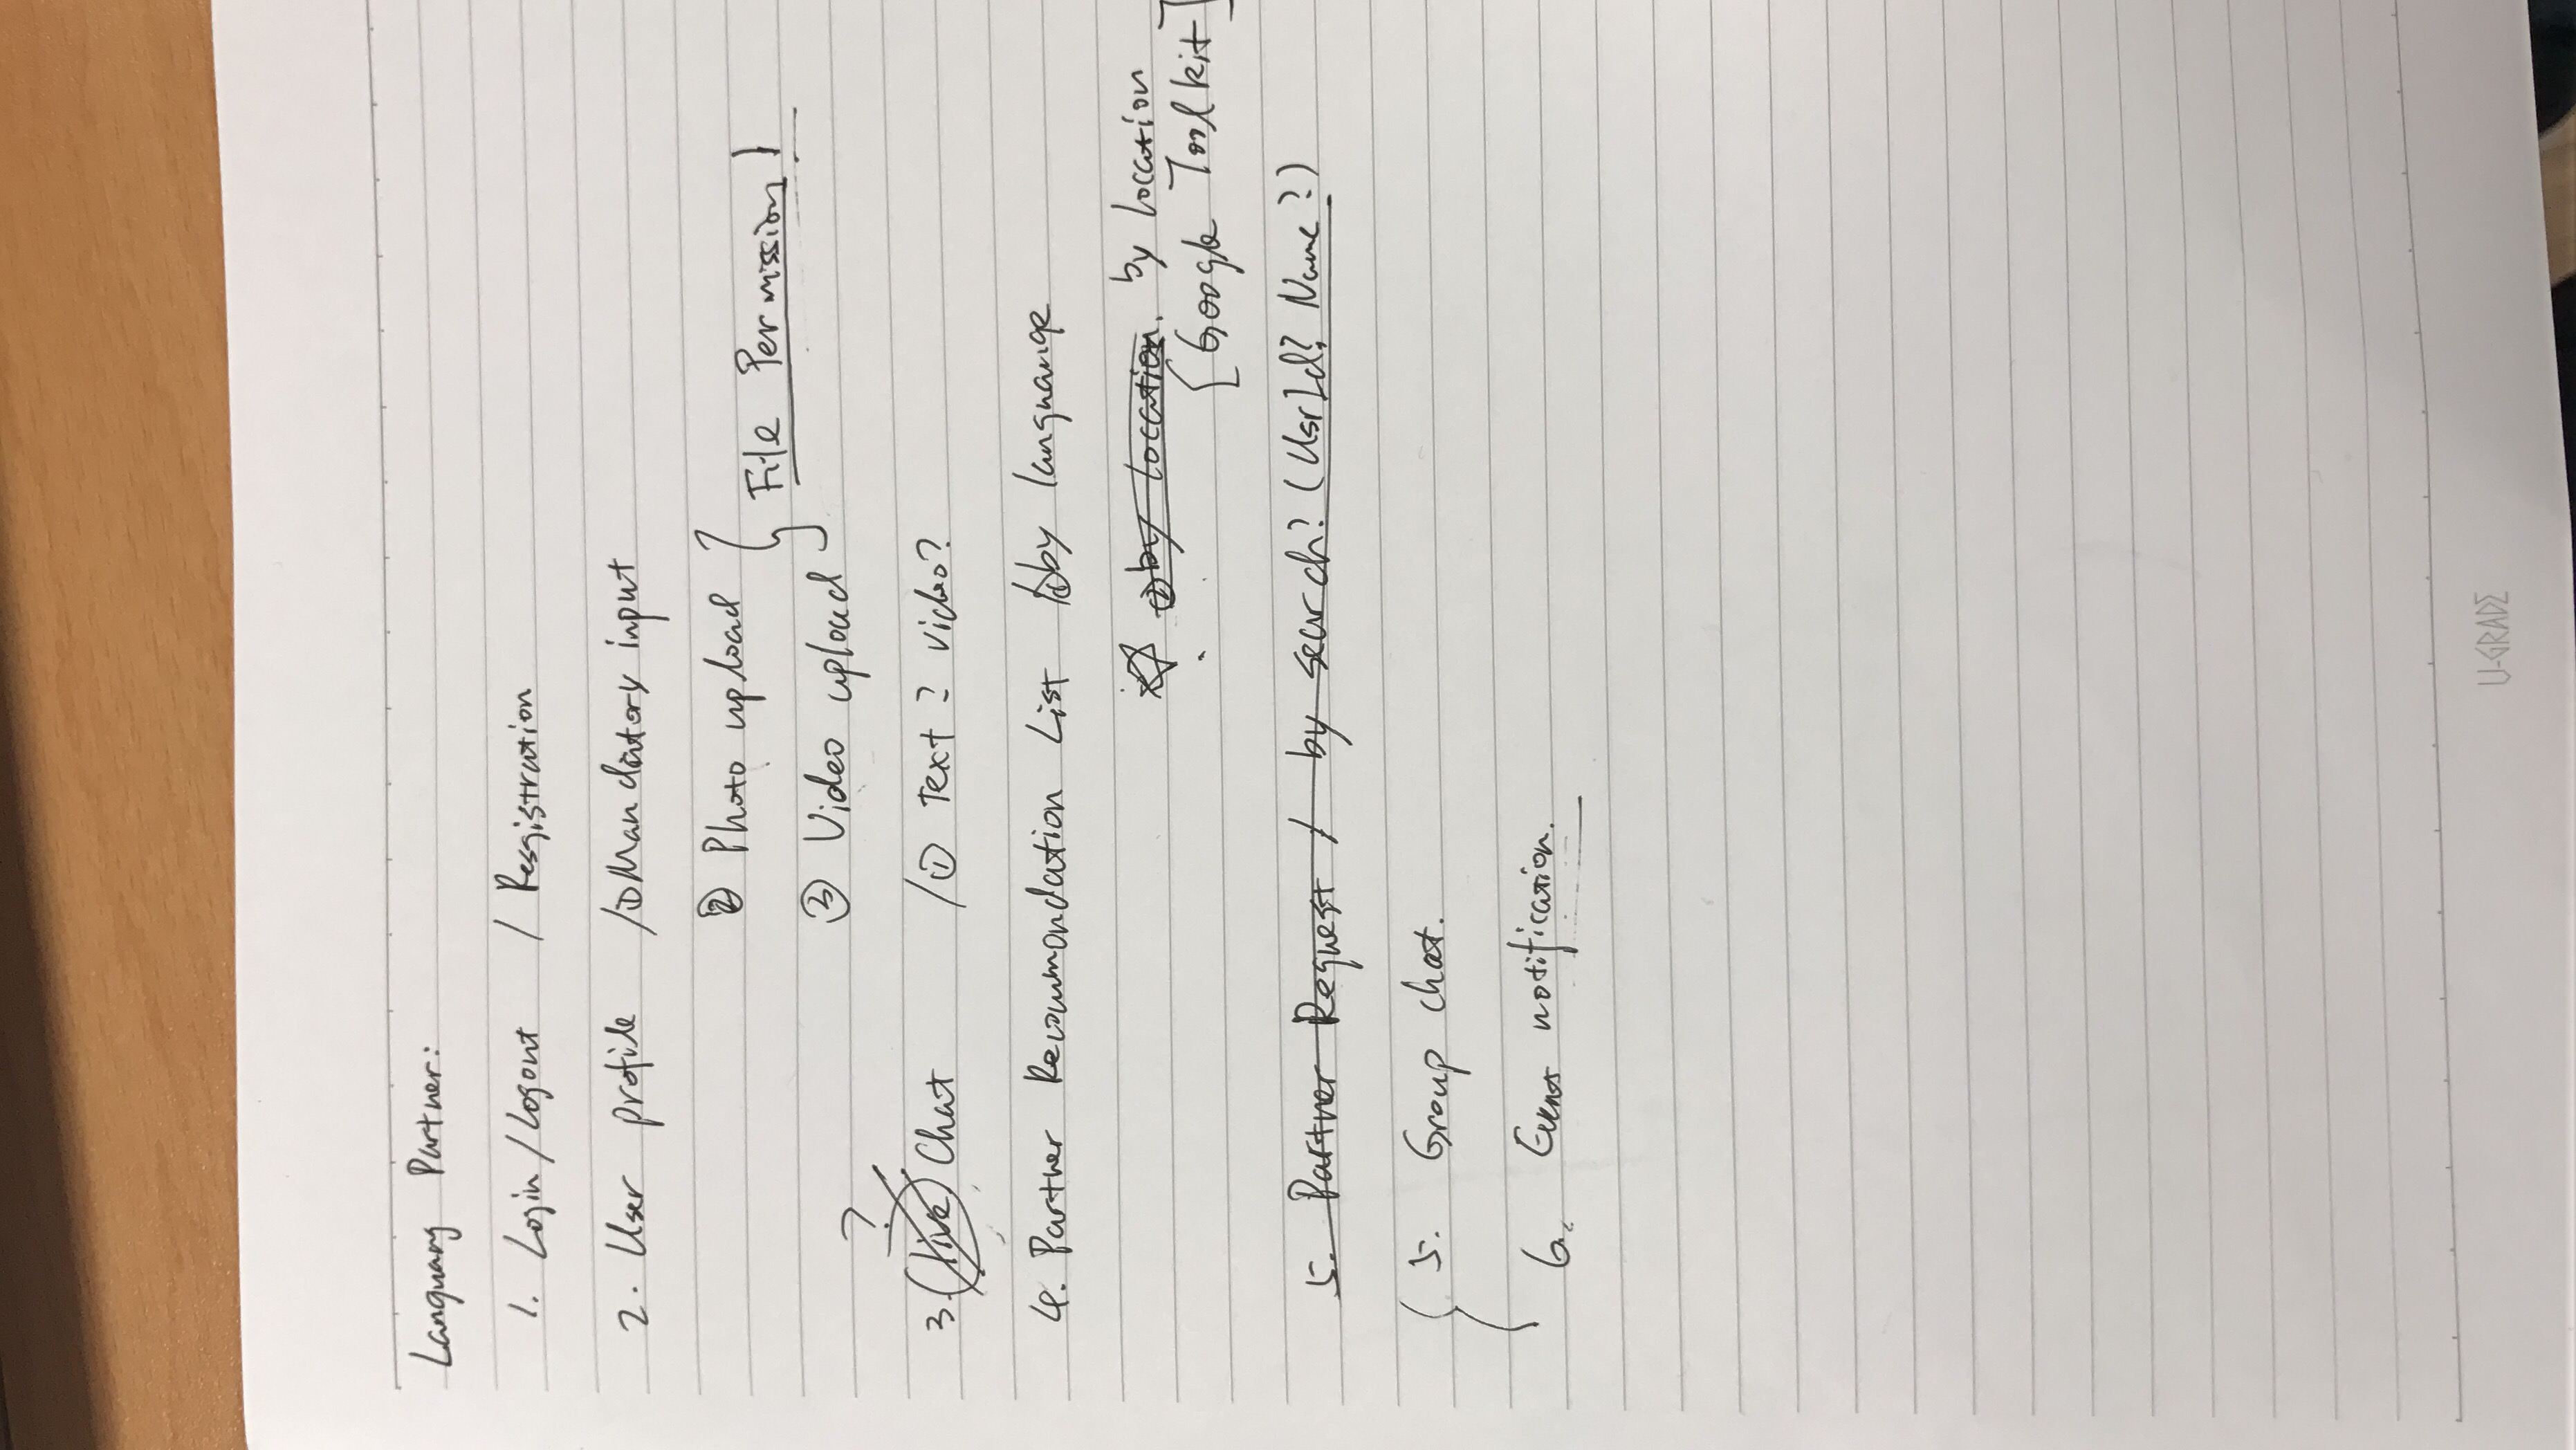 Languang Partner:
1. Login / Logout / Resgistration
2. User profile / ① Mandatory input
② Photo upload
File Permission!
③ Video upload
?
3. live Chat / ① Text? video?
4. Partner Recommondation List / ① by languange
② by loccation. by loccation
[Google Toolkit]
5. Partner Request / by search? (UsrId? Name?)
5. Group chat.
6. Event notification.
U-GRADE